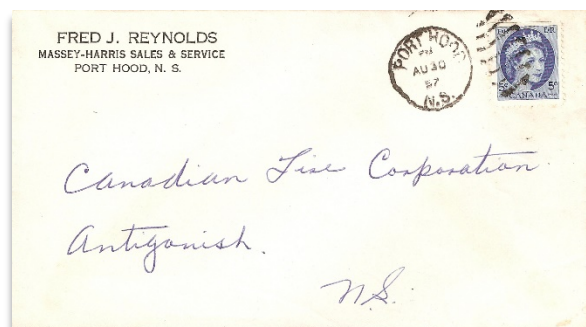 FRED J. REYNOLDS
MASSEY-HARRIS SALES & SERVICE
PORT HOOD, N. S.
PORT HOOD
AU 30
57
N.S.
5¢
CANADA
Canadian Tire Corporation
Antigonish.
N.S.